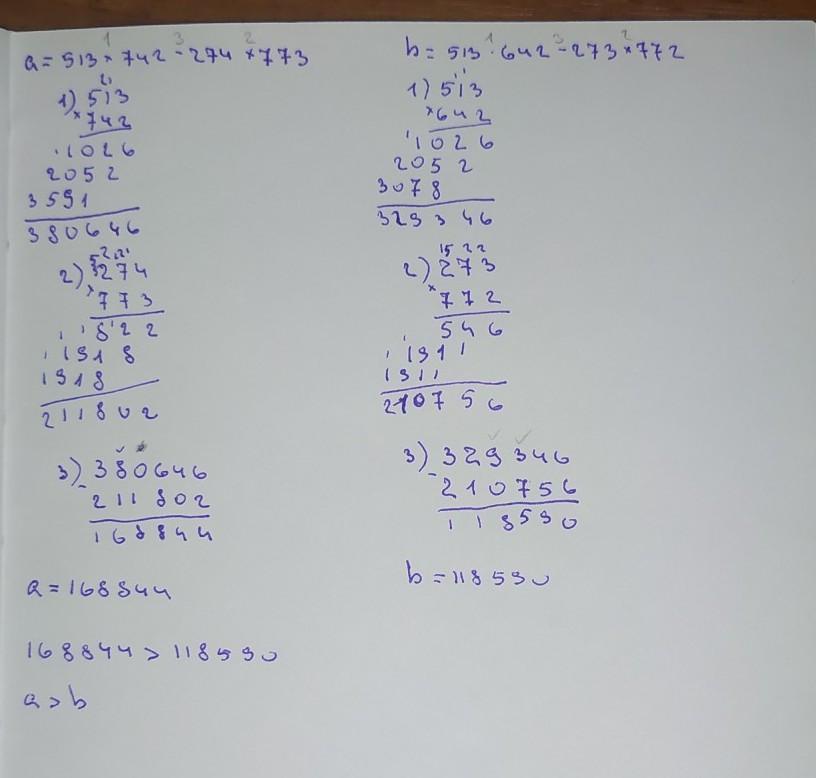 1 3 2
a = 513 × 742 - 274 × 773
21
1) 513
× 742
1026
2052
3591
380646
52 21
2) 274
× 773
822
1918
1918
211802
3) 380646
- 211802
168844
a = 168844
168844 > 118590
a > b
1 3 2
b = 513 · 642 - 273 × 772
11
1) 513
× 642
1026
2052
3078
329346
15 22
2) 273
× 772
546
1911
1911
210756
3) 329346
- 210756
118590
b = 118590